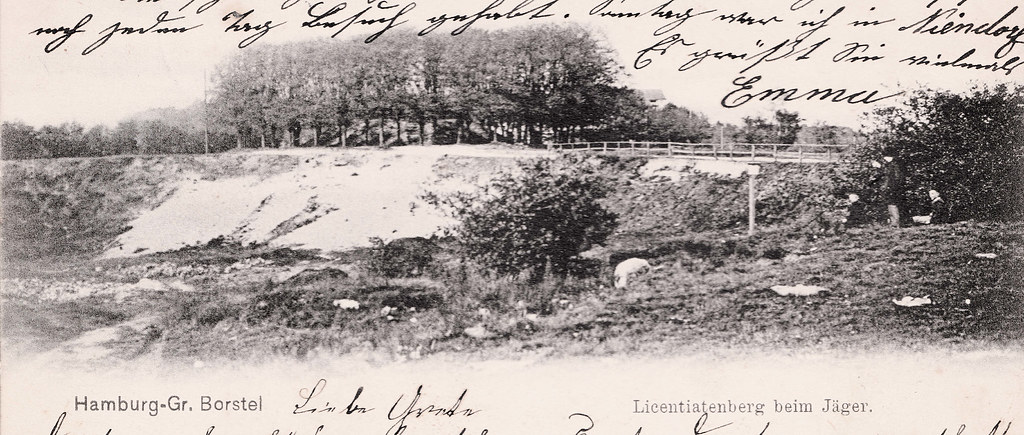 noch jeden Tag Besuch gehabt. Sontag war ich in Niendorf
Es grüßt Sie vielmals
Emma
Hamburg-Gr. Borstel
Liebe Grete
Licentiatenberg beim Jäger.